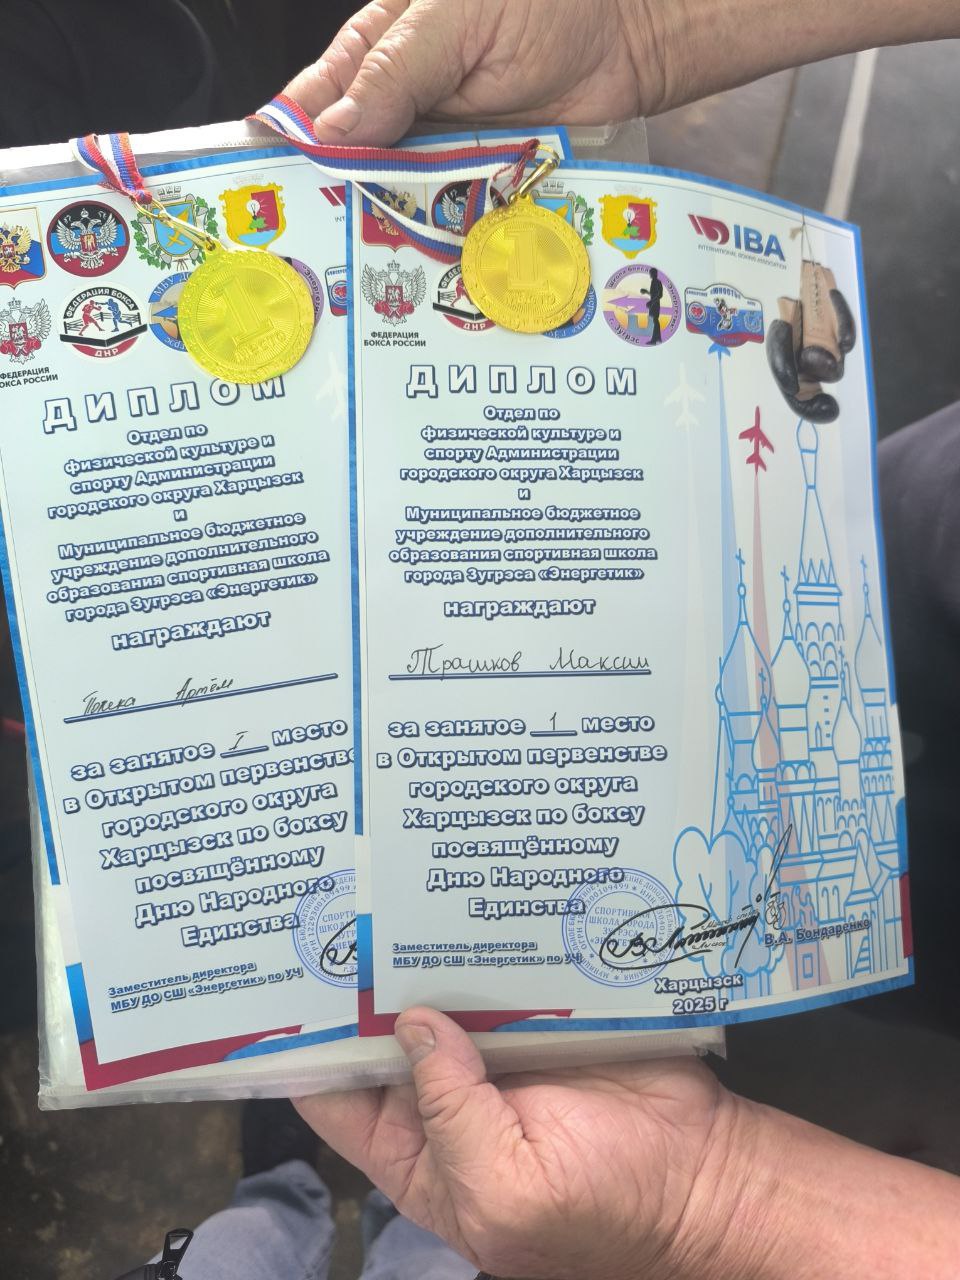 ФЕДЕРАЦИЯ БОКСА
ДНР
ФЕДЕРАЦИЯ
БОКСА РОССИИ
1
МЕСТО
ДИПЛОМ
Отдел по
физической культуре и
спорту Администрации
городского округа Харцызск
и
Муниципальное бюджетное
учреждение дополнительного
образования спортивная школа
города Зугрэса «Энергетик»
награждают
Артём
за занятое I место
в Открытом первенстве
городского округа
Харцызск по боксу
посвящённому
Дню Народного
Единства
Заместитель директора
МБУ ДО СШ «Энергетик» по УЧ
IBA
INTERNATIONAL BOXING ASSOCIATION
ФЕДЕРАЦИЯ
БОКСА РОССИИ
ДНР
г. Зугрэс
1
ДИПЛОМ
Отдел по
физической культуре и
спорту Администрации
городского округа Харцызск
и
Муниципальное бюджетное
учреждение дополнительного
образования спортивная школа
города Зугрэса «Энергетик»
награждают
Трашков Максим
за занятое 1 место
в Открытом первенстве
городского округа
Харцызск по боксу
посвящённому
Дню Народного
Единства
Заместитель директора
МБУ ДО СШ «Энергетик» по УЧ
СПОРТИВНАЯ
ШКОЛА ГОРОДА
ЗУГРЭСА
В.А. Бондаренко
Харцызск
2025 г